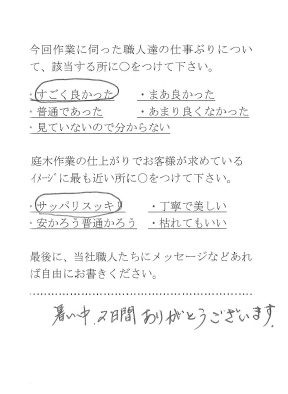 今回作業に伺った職人達の仕事ぶりについ
て、該当する所に○をつけて下さい。
・すごく良かった ・まあ良かった
・普通であった ・あまり良くなかった
・見ていないので分からない
庭木作業の仕上がりでお客様が求めている
ｲﾒｰｼﾞに最も近い所に○をつけて下さい。
・サッパリスッキリ ・丁寧で美しい
・安かろう普通かろう ・枯れてもいい
最後に、当社職人たちにメッセージなどあれ
ば自由にお書きください。
暑い中、2日間ありがとうございます。